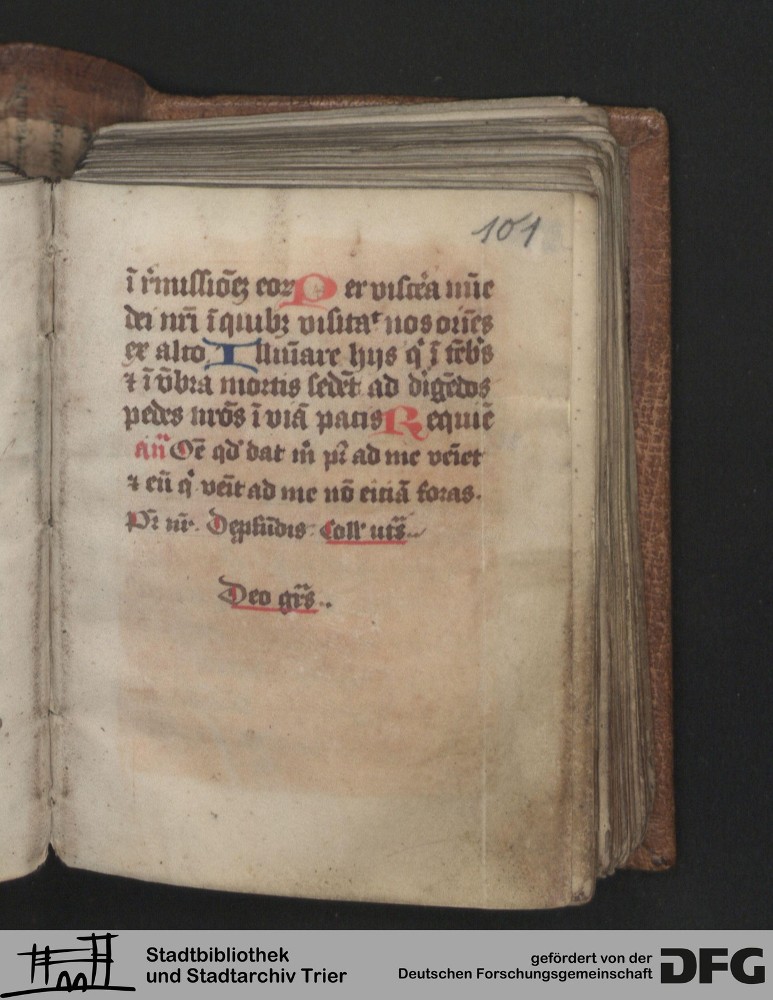 101
ī r̄missiōeȝ eoꝝ Per viscēa mīe
dei nr̄i ī quibꝫ visitaᵗ nos oriēs
ex alto Illuīare hijs qͥ ī tēbͥs
⁊ ī ūbra mortis sedēt ad dīgēdos
pedes nrōs ī viā pacis Requiē
an̄ Oē qd̄ dat m̄ pr̄ ad me veīet
⁊ eū qͥ veīt ad me nō eiciā foras.
Pr̄ nr̄. De ꝓfūdis. Coll' ut sͣ..
Deo gr̄s..
Stadtbibliothek
und Stadtarchiv Trier
gefördert von der
Deutschen Forschungsgemeinschaft
DFG